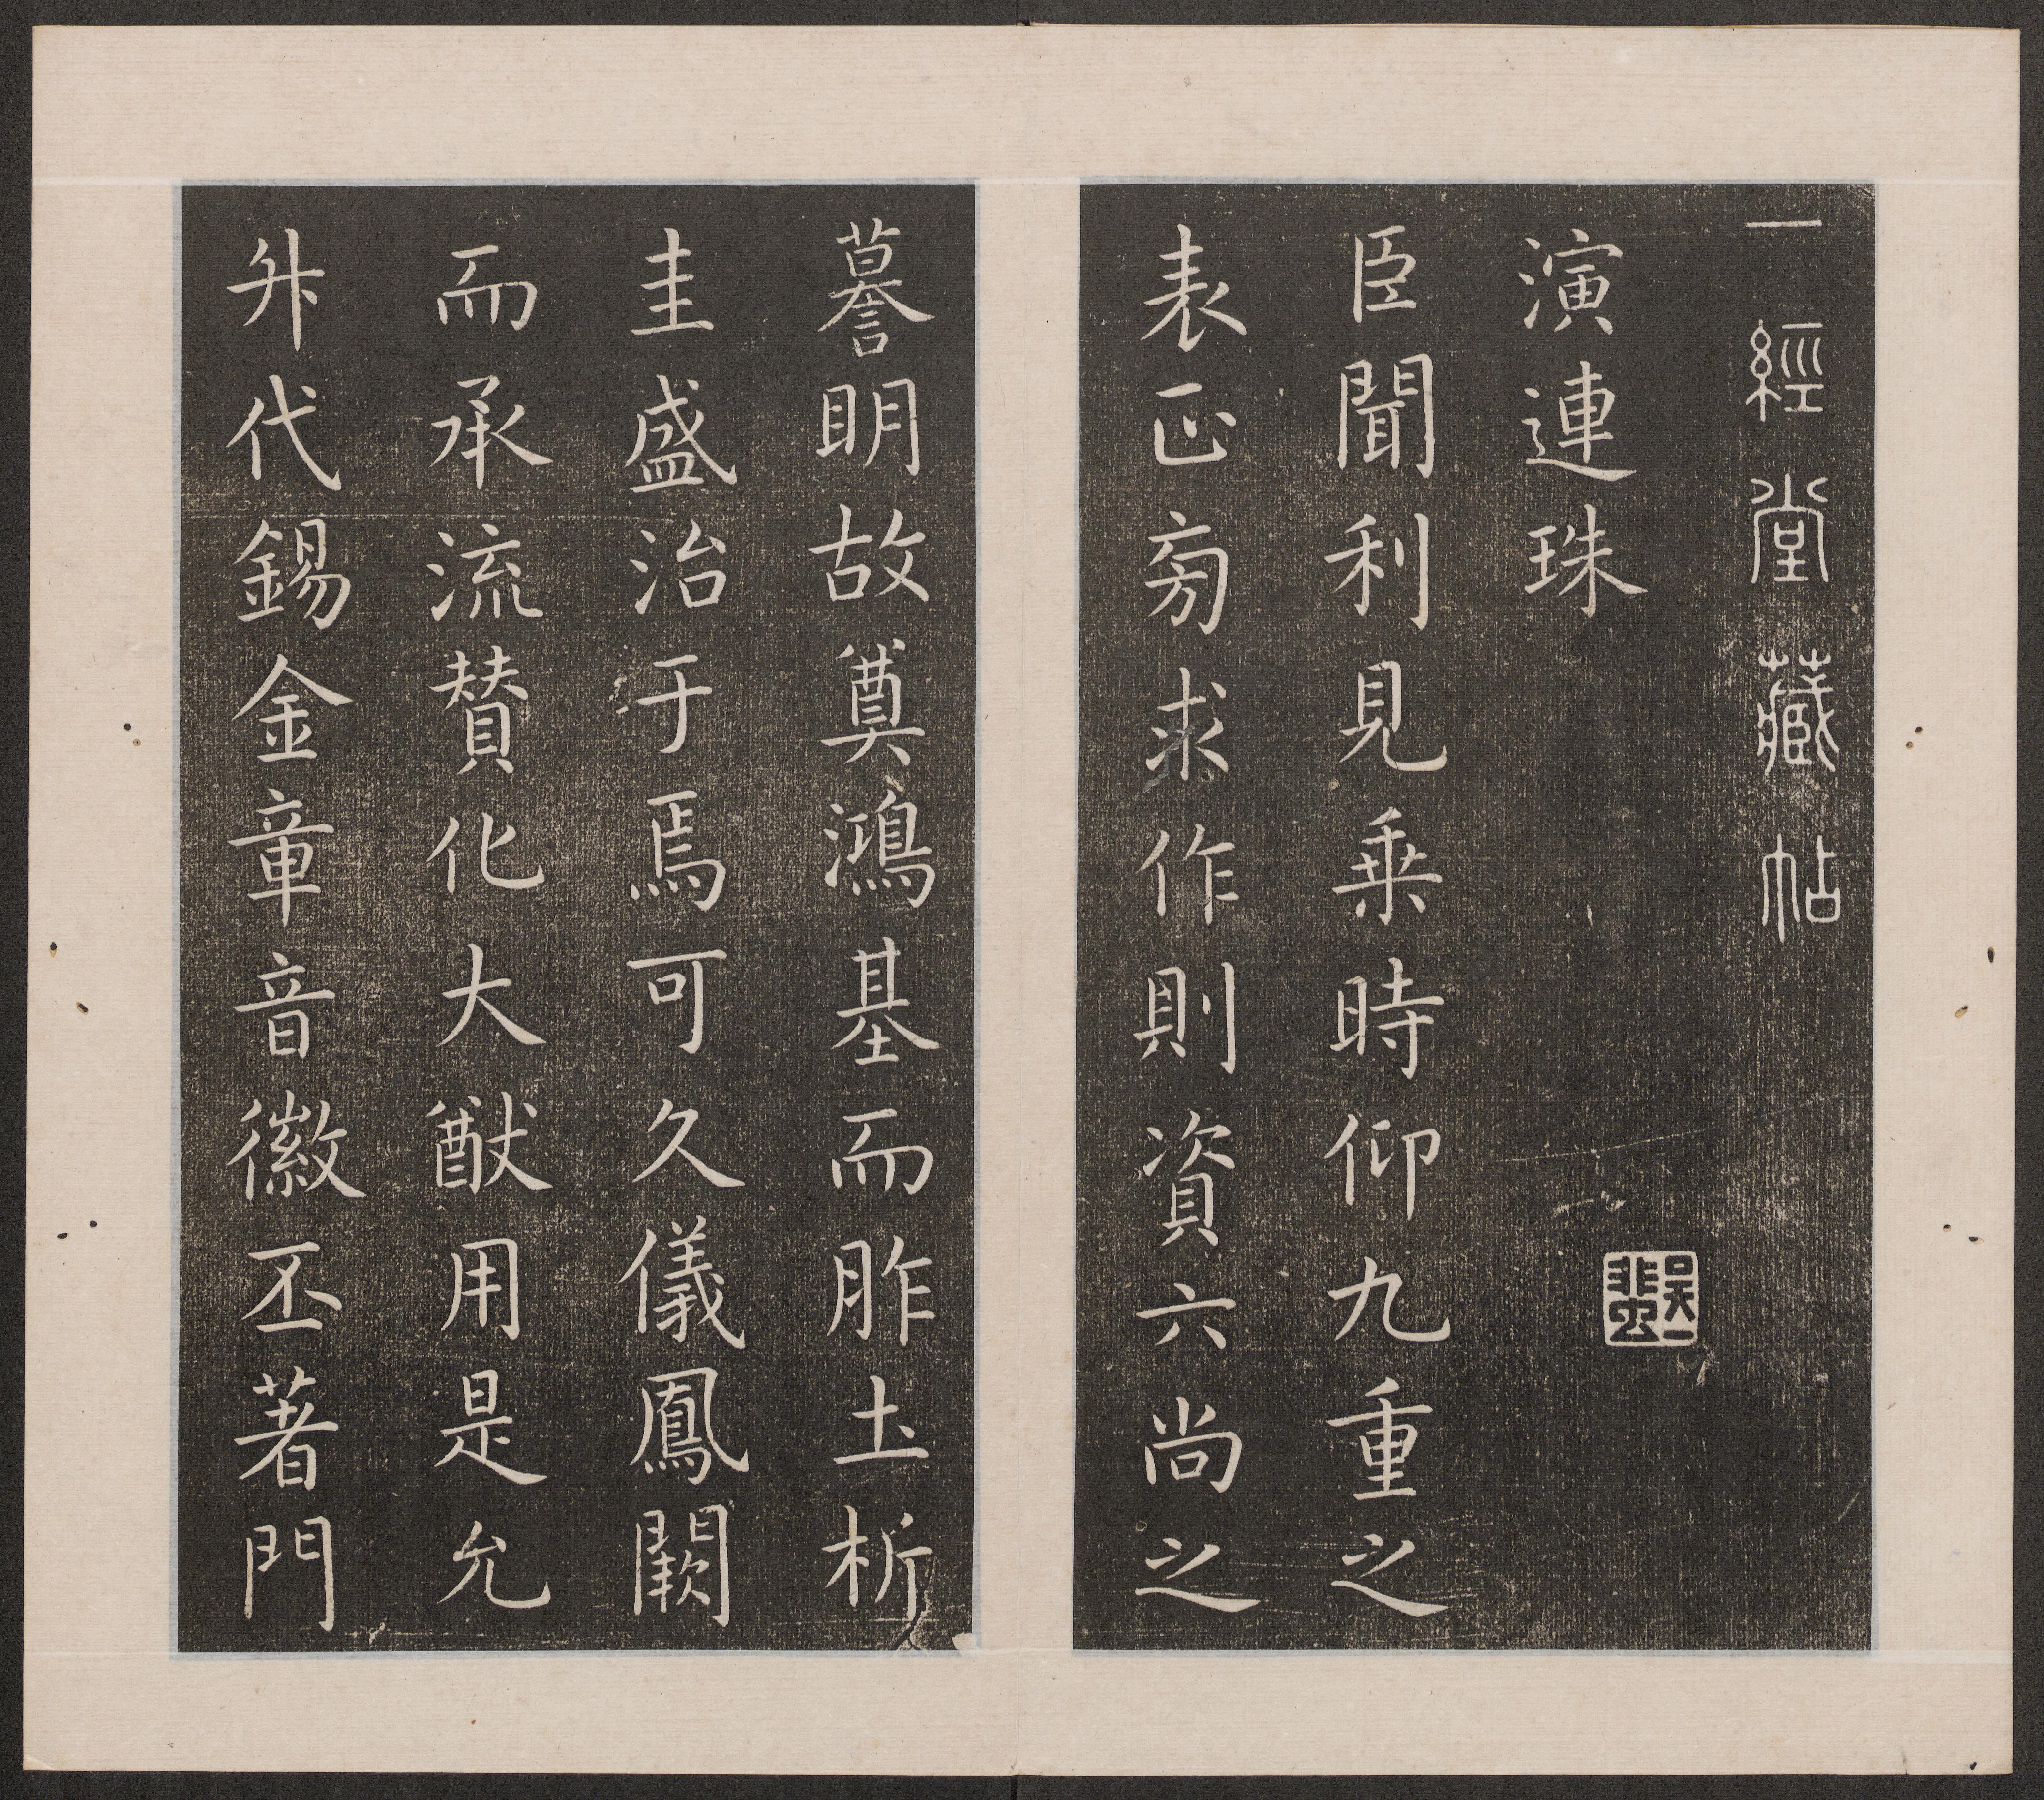 一經堂藏帖
演連珠
臣聞利見乗時仰九重之
表正㫄求作則資六尚之
謩明故奠鴻基而胙土析
圭盛治于焉可久儀鳳闕
而承流賛化大猷用是允
升代錫金章音徽丕著門